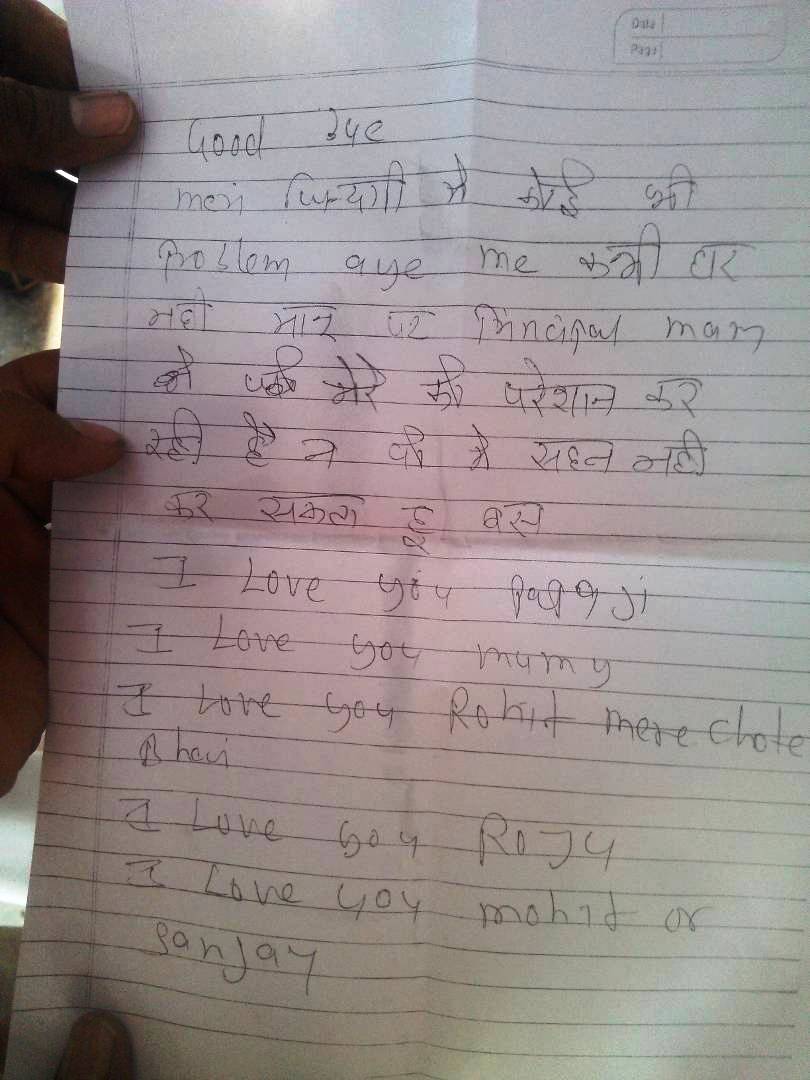 Date
Page
Good उye
meri जिन्दगी मे कोई भी
Problem aye me कभी हार
नही मान पर Principal mam
मेरे को परेशान कर
रही है मे सहन नही
कर सकता हू बस
I Love you papa ji
I Love you mumy
I Love you Rohit mere chote
Bhai
I Love you RoJy
I Love you mohit or
sanjay